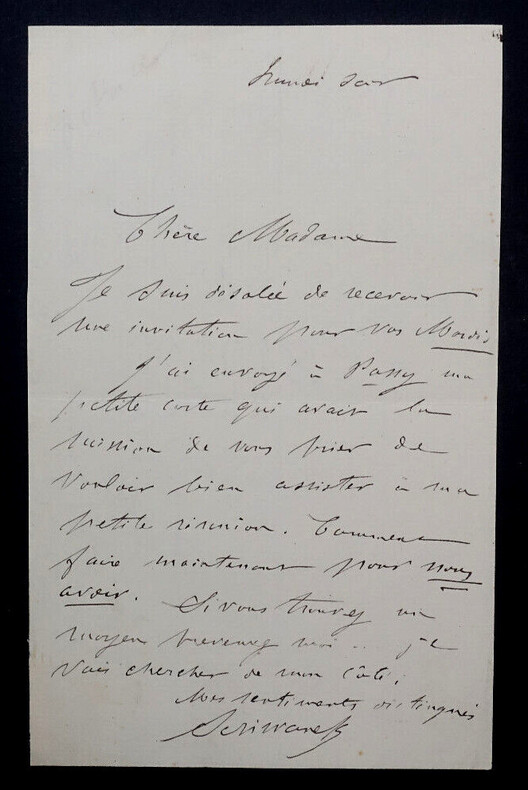 Lundi soir
Chère Madame
Je suis désolée de recevoir
une invitation pour vos Mardis
J'ai envoyé à Passy ma
petite carte qui avait la
mission de vous prier de
vouloir bien assister à ma
petite réunion. Comment
faire maintenant pour nous
avoir. Si vous trouvez un
moyen prevenez moi .. je
vais chercher de mon côté.
Mes sentiments distingués